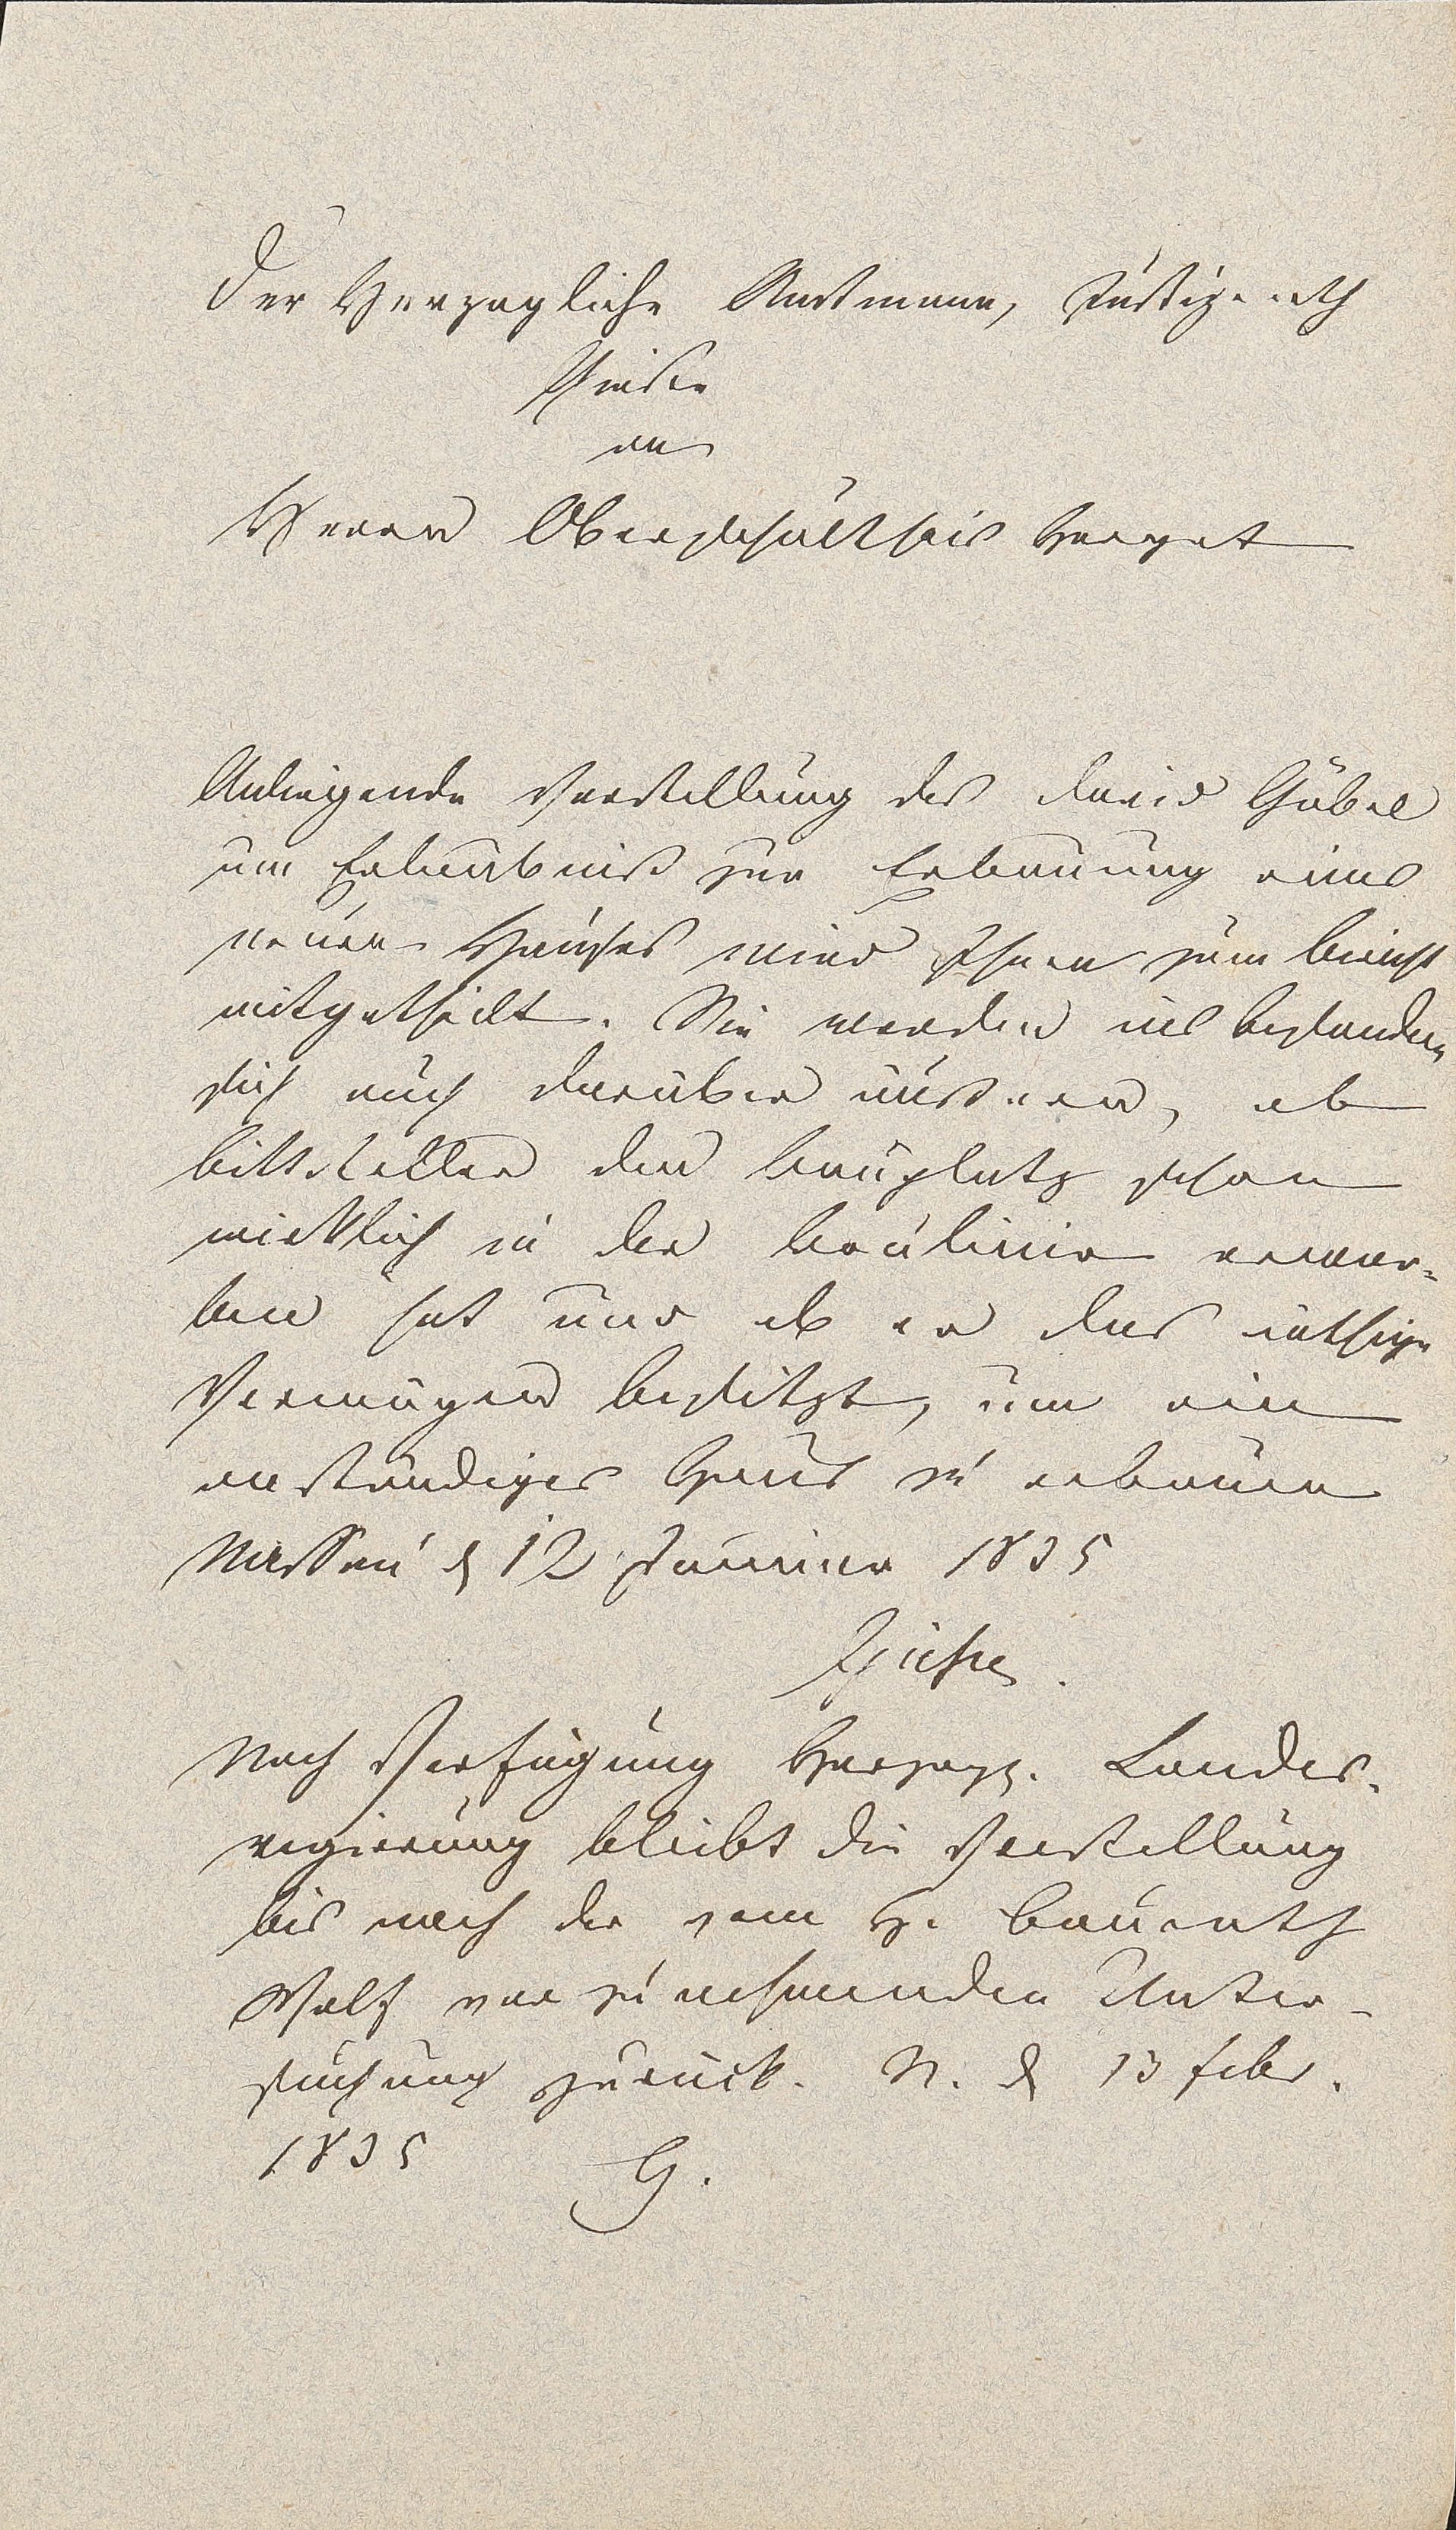 Der Herzogliche Amtmann, Justizrath
an
Herrn Oberschultheis Herget
Anliegende Vorstellung des David Göbel
um Erlaubniß zur Erbauung eines
neuen Hauses wird Ihnen zum Bericht
mitgetheilt. Sie werden ins besondere
sich auch darüber äussern, ob
Bittsteller den Bauplatz schon
wirklich in der Baulinie erwor-
ben hat und ob er das nöthige
Vermögen besitzt, um ein
anständiges Haus zu erbauen
Nassau d 12 Januar 1835
Nach Verfügung Herzogl. Landes-
regierung bleibt die Vorstellung
bis nach der vom H. Baurath
Wolf vorzunehmenden Unter-
suchung zurück. N. d 13 febr.
1835 G.